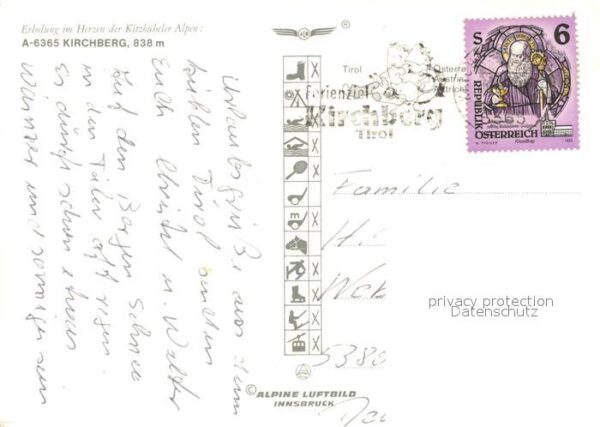 Erholung im Herzen der Kitzbüheler Alpen:
A-6365 KIRCHBERG, 838 m
Urlaubsgrüße aus dem
kühlen Tirol senden
Euch Christel u. Walter
Auf den Bergen Schnee
in den Täler oft Regen.
Es dürfte schon etwas
wärmer und sonniger sein
Tirol
Österre
Austria
trich
Ferienziel
Kirchberg
Tirol
S 6
REPUBLIK
ÖSTERREICH
Familie
H
We
5380
privacy protection
Datenschutz
© ALPINE LUFTBILD
INNSBRUCK